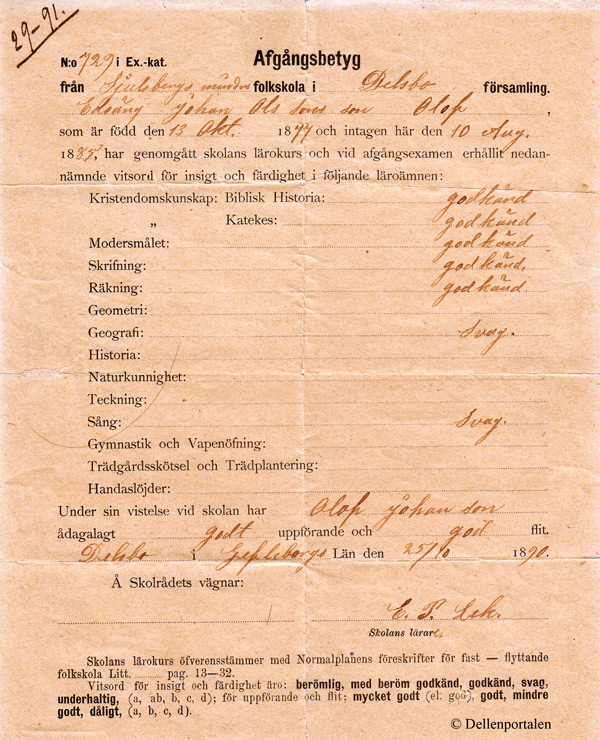 29-91.
N:o 729 i Ex.-kat. Afgångsbetyg
från Sjulsbergs mindre folkskola i Delsbo församling.
Edsäng Johan Ols sons son Olof,
som är född den 13 Okt. 1877 och intagen här den 10 Aug.
1885, har genomgått skolans lärokurs och vid afgångsexamen erhållit nedan-
nämnde vitsord för insigt och färdighet i följande läroämnen:
Kristendomskunskap: Biblisk Historia: godkänd
„ Katekes: godkänd
Modersmålet: godkänd
Skrifning: godkänd.
Räkning: godkänd
Geometri:
Geografi: Svag.
Historia:
Naturkunnighet:
Teckning:
Sång: Svag.
Gymnastik och Vapenöfning:
Trädgårdsskötsel och Trädplantering:
Handaslöjder:
Under sin vistelse vid skolan har Olof Johan son
ådagalagt godt uppförande och god flit.
Delsbo i Gefleborgs Län den 25/10 1890.
Å Skolrådets vägnar:
E. P. Lek.
Skolans lärare.
Skolans lärokurs öfverensstämmer med Normalplanens föreskrifter för fast — flyttande
folkskola Litt. pag. 13—32.
Vitsord för insigt och färdighet äro: berömlig, med beröm godkänd, godkänd, svag,
underhaltig, (a, ab, b, c, d); för uppförande och flit: mycket godt (el. god), godt, mindre
godt, dåligt, (a, b, c, d).
© Dellenportalen